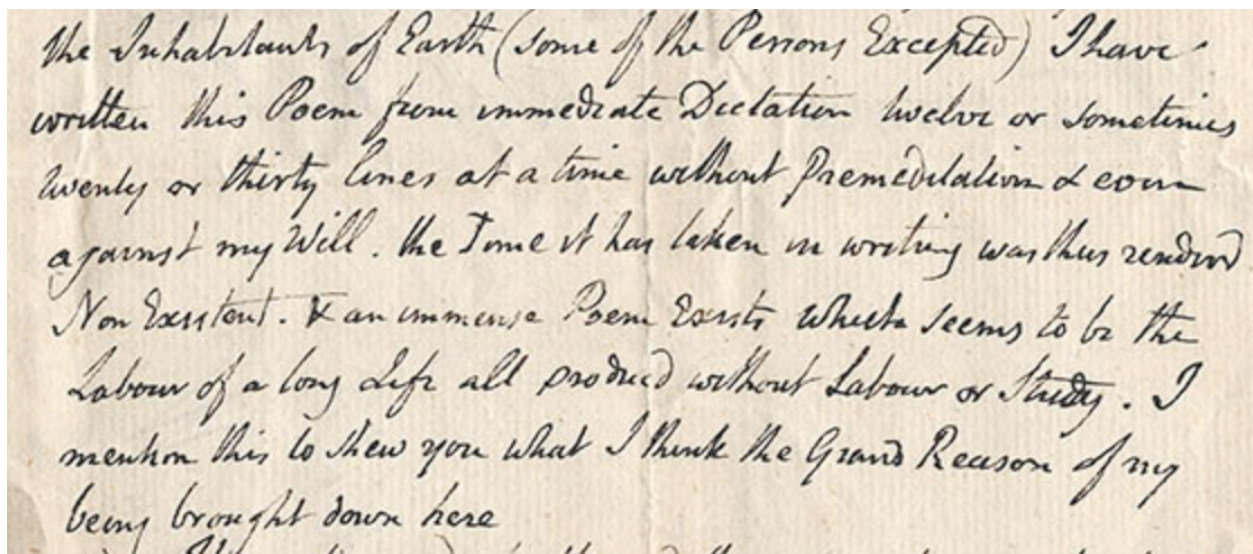 the Inhabitants of Earth (some of the Persons Excepted) I have
written this Poem from immediate Dictation twelve or sometimes
twenty or thirty lines at a time without Premeditation & even
against my Will. the Time it has taken in writing was thus renderd
Non Existent. & an immense Poem Exists which seems to be the
Labour of a long Life all producd without Labour or Study. I
mention this to shew you what I think the Grand Reason of my
being brought down here